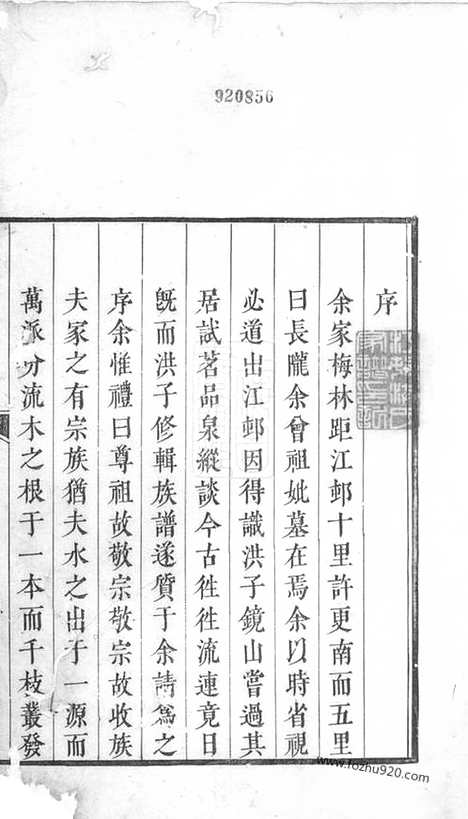 920856
序
余家梅林距江邨十里許更南而五里
曰長隴余曾祖妣墓在焉余以時省視
必道出江邨因得識洪子鏡山嘗過其
居試茗品泉縱談今古徃徃流連竟日
旣而洪子修輯族譜遂質于余請爲之
序余惟禮曰尊祖故敬宗敬宗故收族
夫家之有宗族猶夫水之出于一源而
萬派分流木之根于一本而千枝叢發
www.fozhu920.com